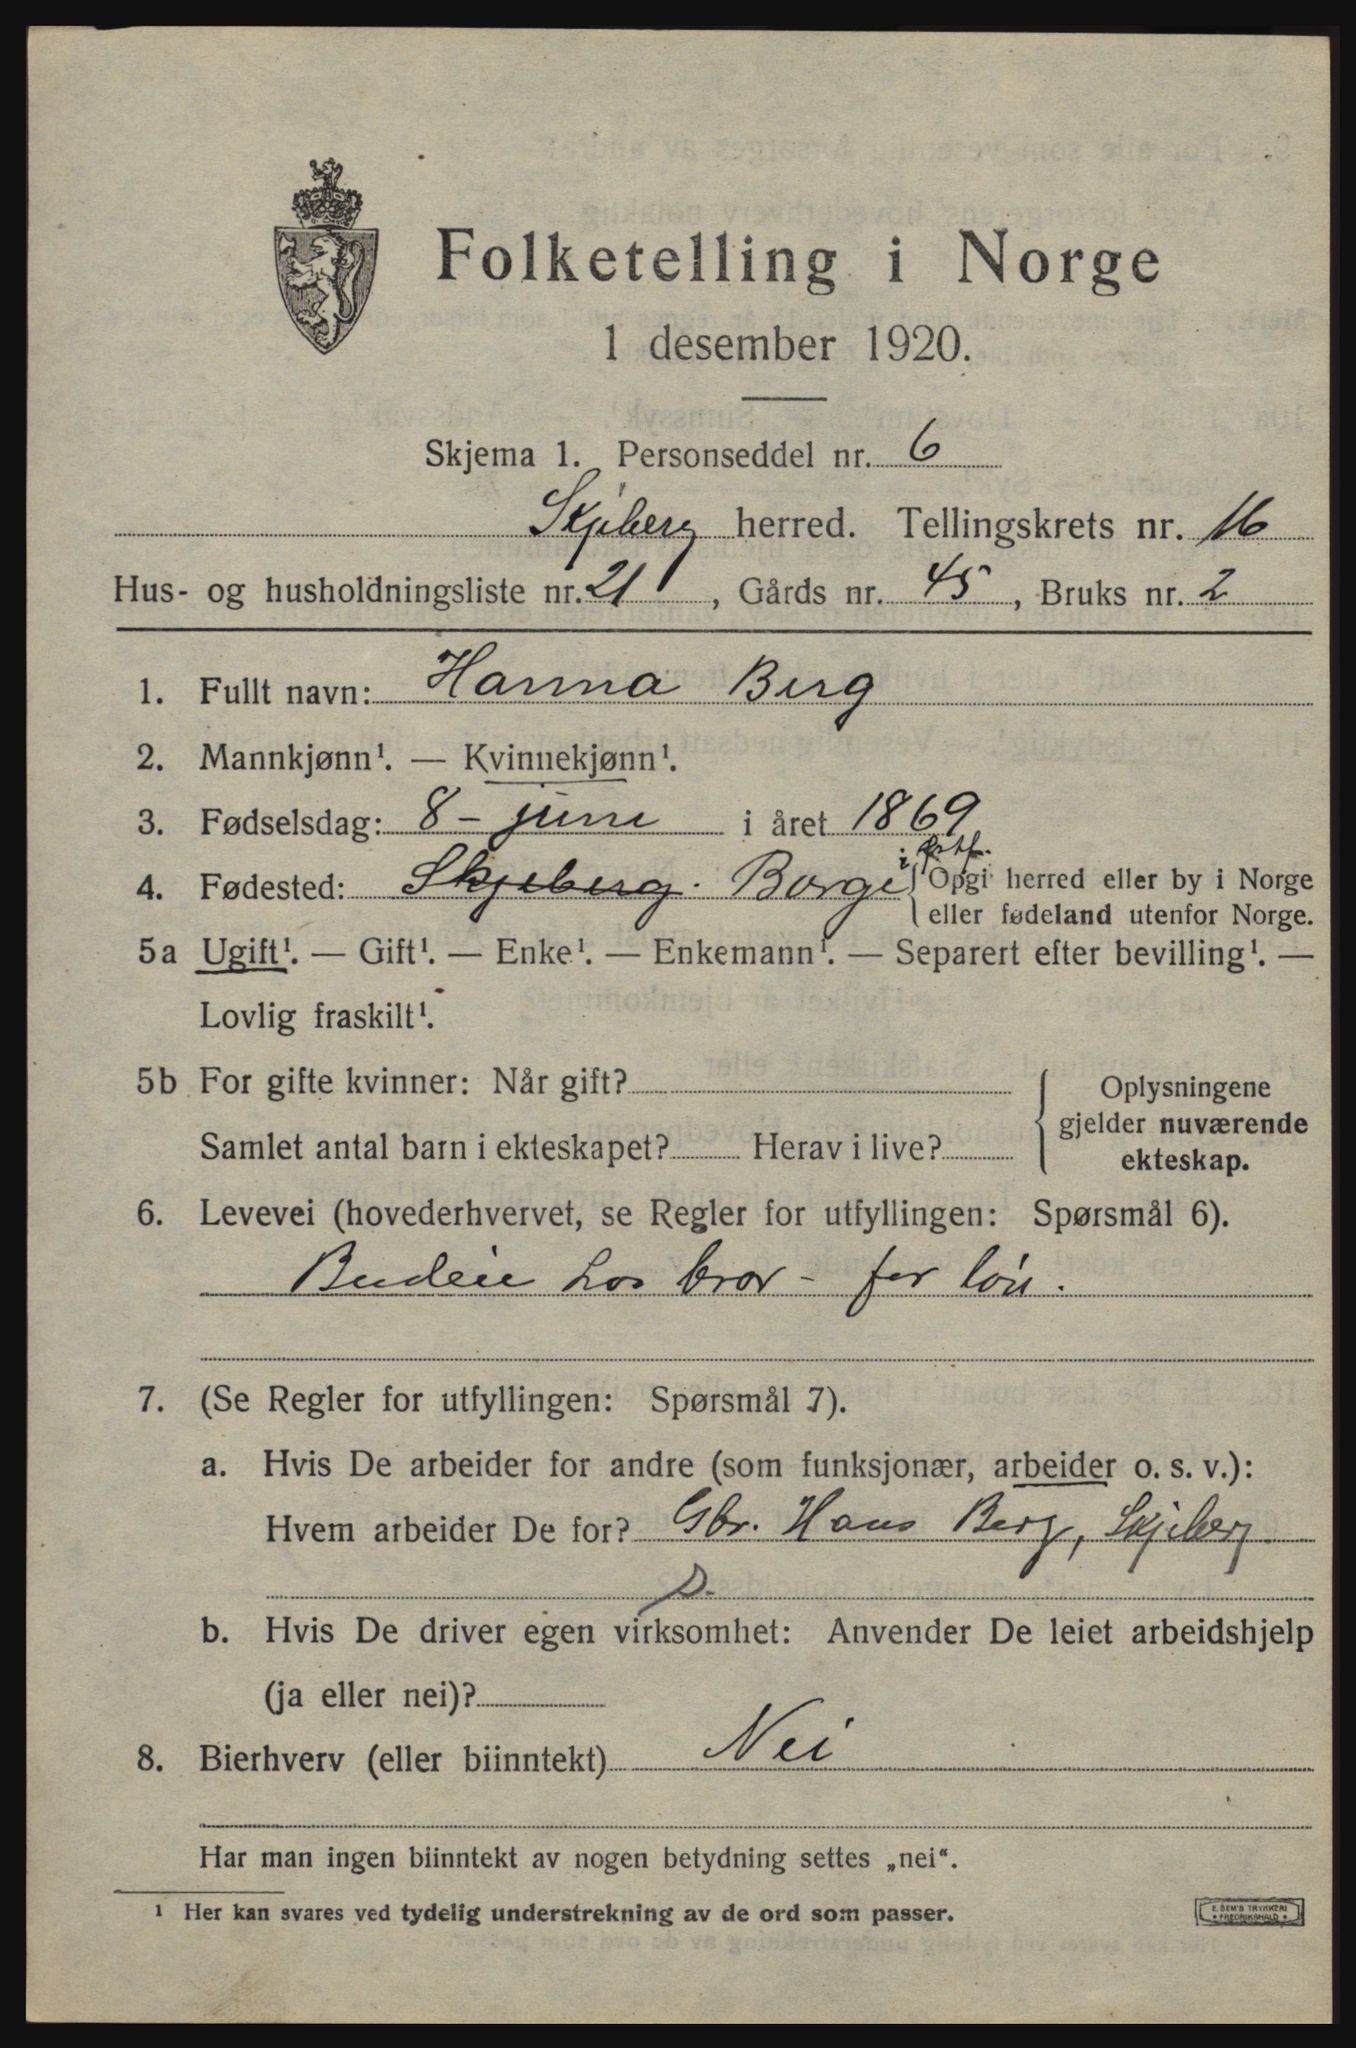 Folketelling i Norge
1 desember 1920.
Skjema 1. Personseddel nr. 6
Skjeberg herred. Tellingskrets nr. 16
Hus- og husholdningsliste nr. 21, Gårds nr. 45, Bruks nr. 2
1. Fullt navn: Hanna Berg
2. Mannkjønn¹. — Kvinnekjønn¹.
3. Fødselsdag: 8 - juni i året 1869
i Østf.
4. Fødested: Skjeberg. Borge { Opgi herred eller by i Norge
eller fødeland utenfor Norge.
5a Ugift¹. — Gift¹. — Enke¹. — Enkemann¹. — Separert efter bevilling¹. —
Lovlig fraskilt¹.
5b For gifte kvinner: Når gift? { Oplysningene
gjelder nuværende
Samlet antal barn i ekteskapet? Herav i live?
ekteskap.
6. Levevei (hovederhvervet, se Regler for utfyllingen: Spørsmål 6).
Budeie hos bror - for løn.
7. (Se Regler for utfyllingen: Spørsmål 7).
a. Hvis De arbeider for andre (som funksjonær, arbeider o. s. v.):
Hvem arbeider De for? Gbr. Hans Berg, Skjeberg
b. Hvis De driver egen virksomhet: Anvender De leiet arbeidshjelp
(ja eller nei)?
8. Bierhverv (eller biinntekt) Nei
Har man ingen biinntekt av nogen betydning settes „nei“.
¹ Her kan svares ved tydelig understrekning av de ord som passer.
E. SEM'S TRYKKERI
• FREDRIKSHALD •